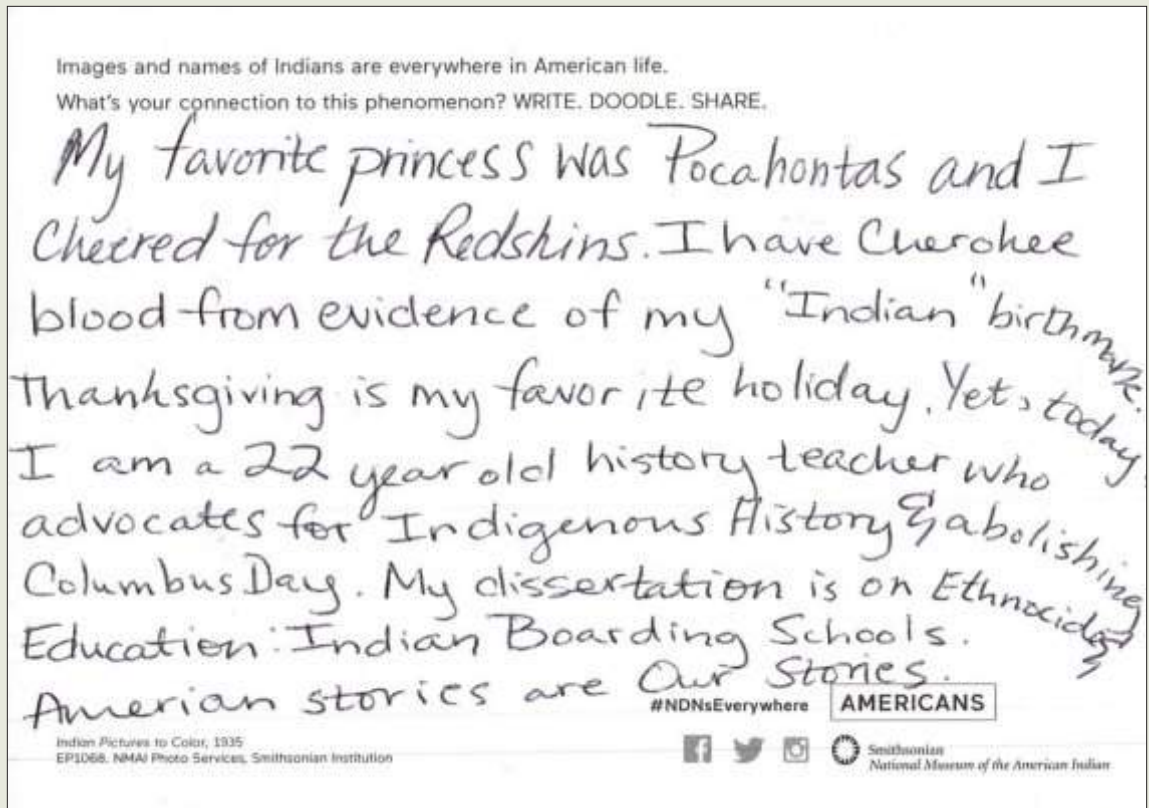 Images and names of Indians are everywhere in American life.
What's your connection to this phenomenon? WRITE. DOODLE. SHARE.
My favorite princess was Pocahontas and I
Cheered for the Redskins. I have Cherokee
blood from evidence of my "Indian" birthmark.
Thanksgiving is my favorite holiday. Yet, today
I am a 22 year old history teacher who
advocates for Indigenous History & abolishing
Columbus Day. My dissertation is on Ethnocide &
Education: Indian Boarding Schools.
Amerian stories are Our Stories.
#NDNsEverywhere AMERICANS
Indian Pictures to Color, 1935
EP1068. NMAI Photo Services, Smithsonian Institution
Smithsonian
National Museum of the American Indian